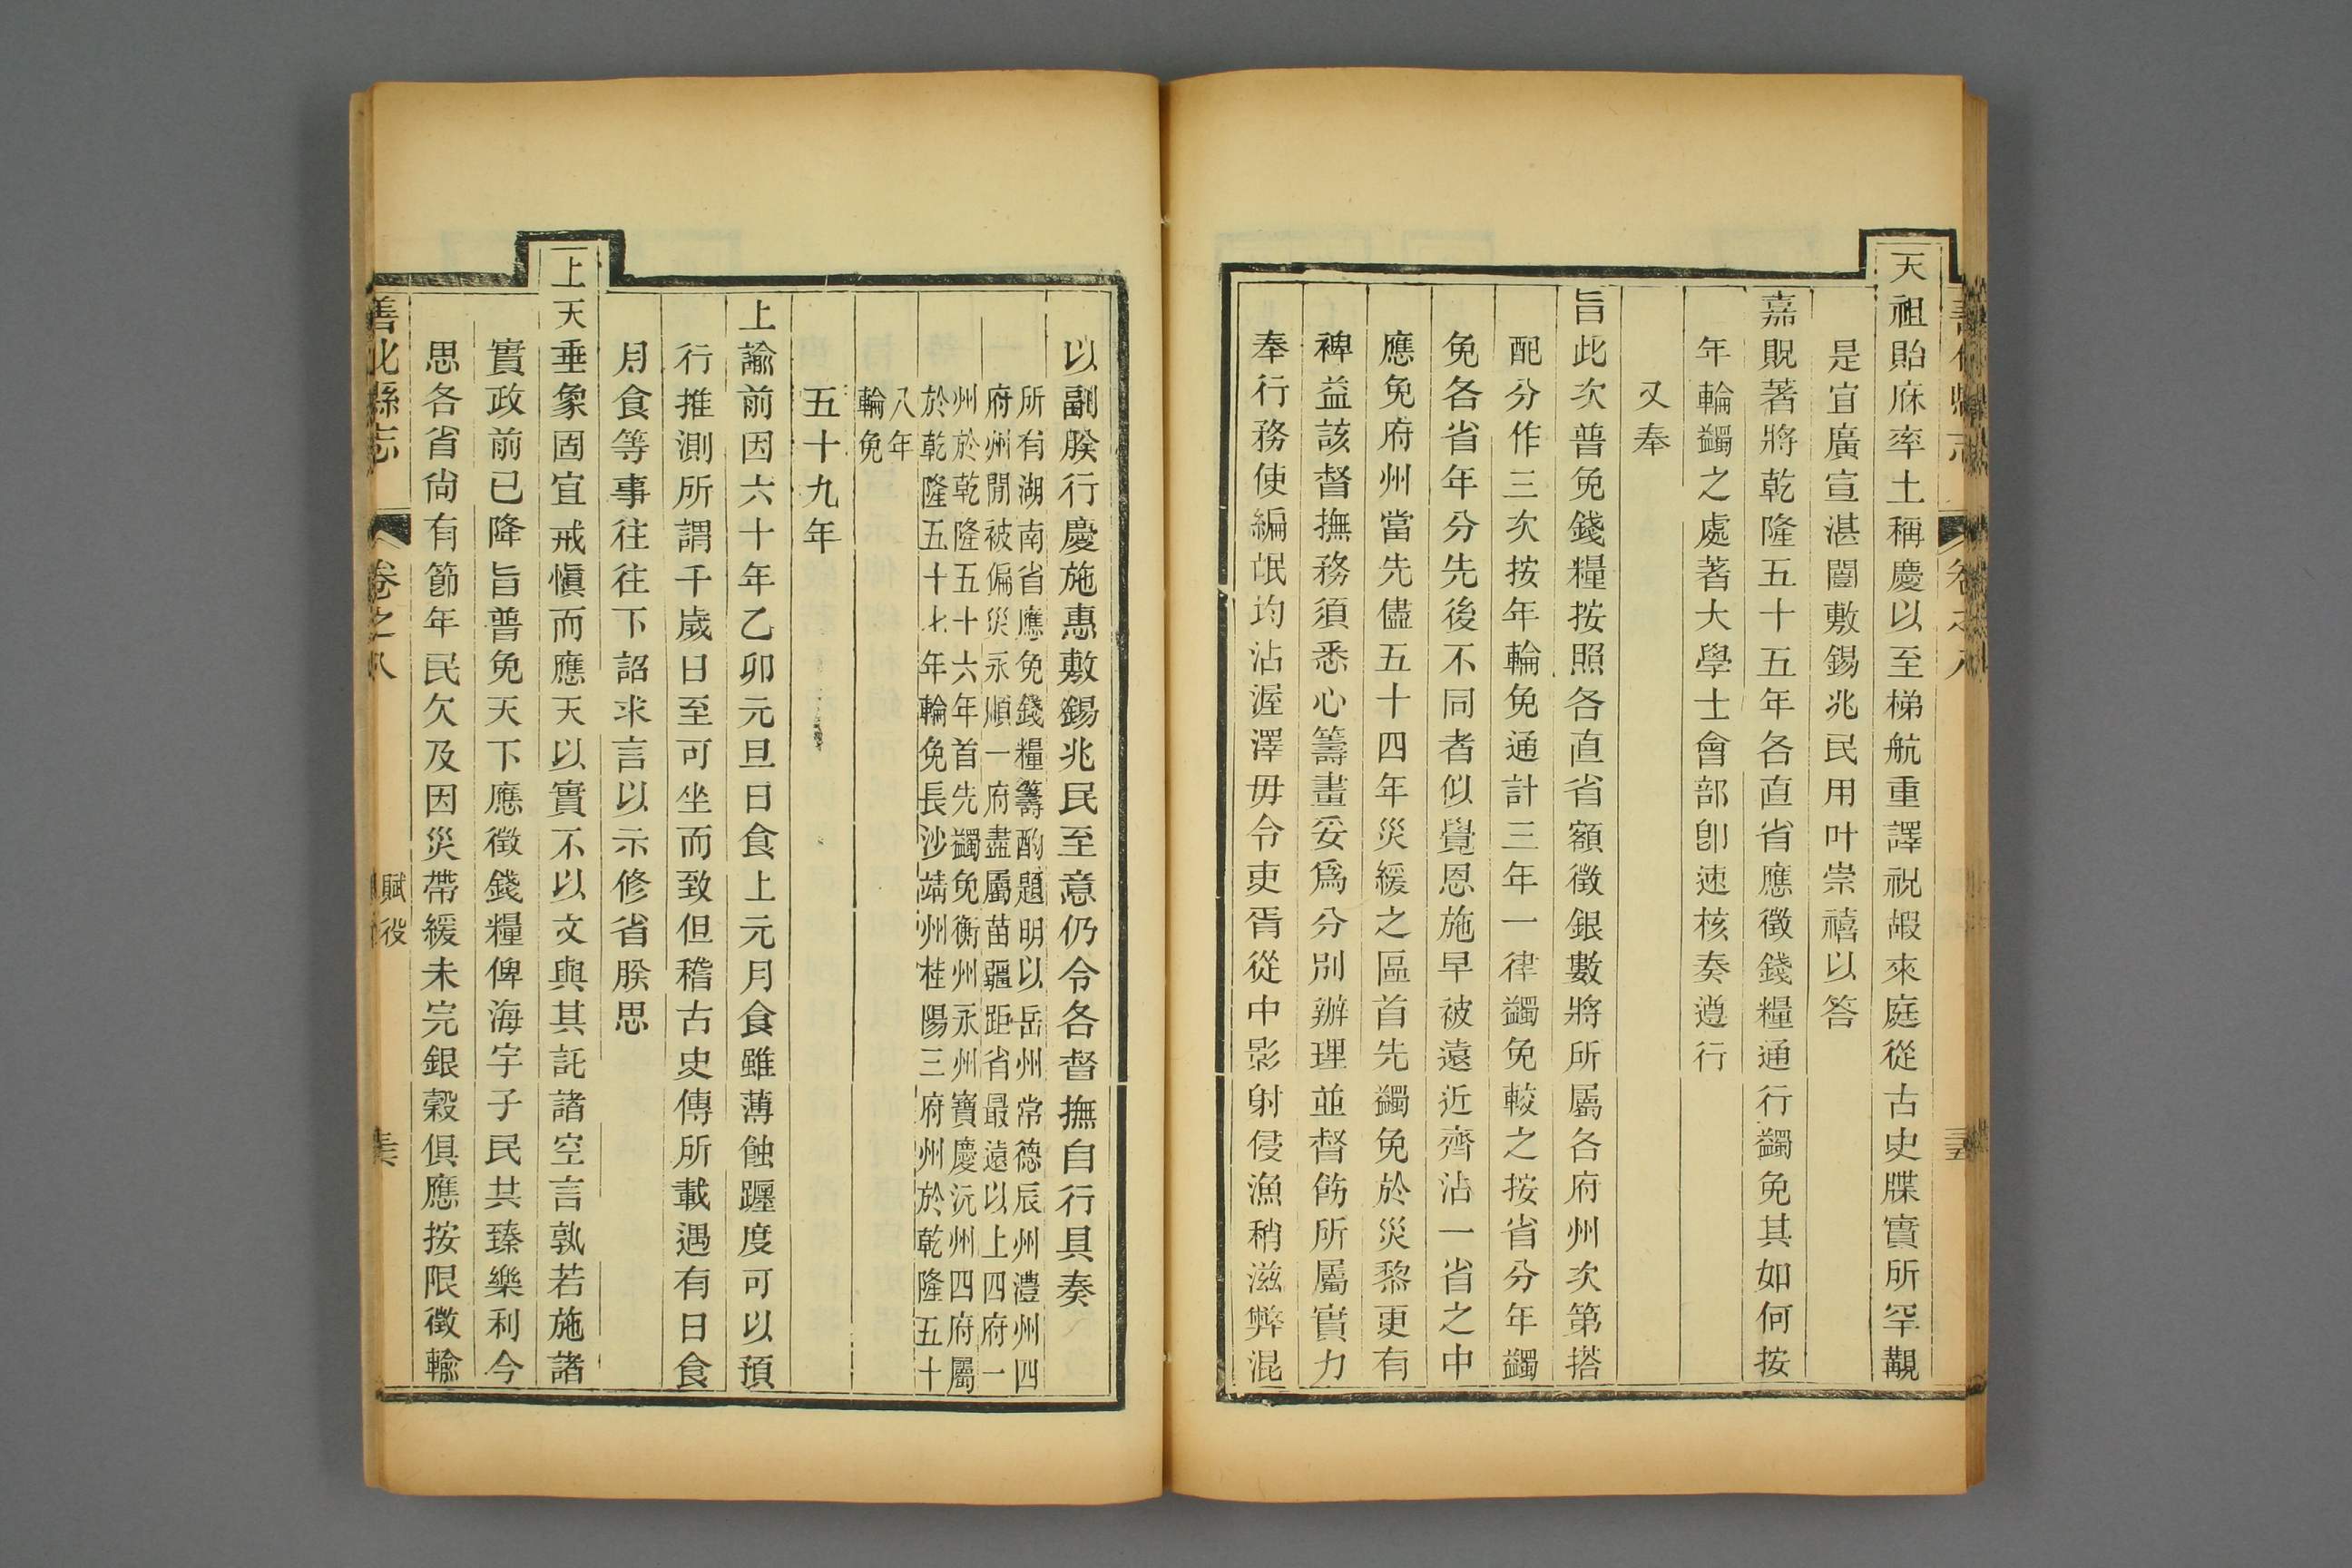 天祖貽庥率土稱慶以至梯航重譯祝嘏來庭從古史牒實所罕覯
是宜廣宣湛闓敷錫兆民用叶崇禧以答
嘉貺著將乾隆五十五年各直省應徵錢糧通行蠲免其如何按
年輪蠲之處著大學士會部卽速核奏遵行
又奉
旨此次普免錢糧按照各直省額徵銀數將所屬各府州次第搭
配分作三次按年輪免通計三年一律蠲免較之按省分年蠲
免各省年分先後不同者似覺恩施早被遠近齊沾一省之中
應免府州當先儘五十四年災緩之區首先蠲免於災黎更有
裨益該督撫務須悉心籌畫妥爲分別辦理並督飭所屬實力
奉行務使編氓均沾渥澤毋令吏胥從中影射侵漁稍滋弊混
以副朕行慶施惠敷錫兆民至意仍令各督撫自行具奏
所有湖南省應免錢糧籌酌題明以岳州常德辰州澧州四
府州閒被偏災永順一府盡屬苗疆距省最遠以上四府一
州於乾隆五十六年首先蠲免衡州永州寶慶沅州四府屬
於乾隆五十七年輪免長沙靖州桂陽三府州於乾隆五十
八年
輪免
五十九年
上諭前因六十年乙卯元旦日食上元月食雖薄蝕躔度可以預
行推測所謂千歲日至可坐而致但稽古史傳所載遇有日食
月食等事往往下詔求言以示修省朕思
上天垂象固宜戒愼而應天以實不以文與其託諸空言孰若施諸
實政前已降旨普免天下應徵錢糧俾海宇子民共臻樂利今
思各省尙有節年民欠及因災帶緩未完銀穀俱應按限徵輸
善化縣志
卷之八
賦役